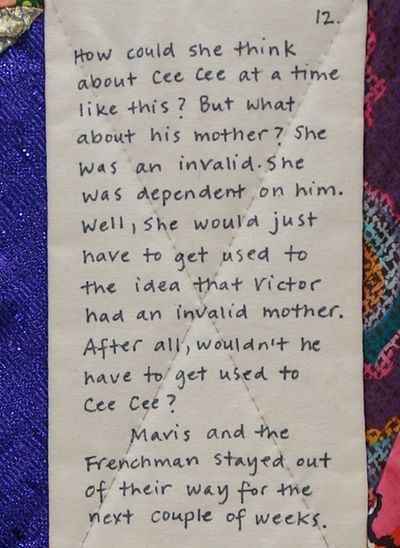 12.
How could she think
about Cee Cee at a time
like this? But what
about his mother? She
was an invalid. She
was dependent on him.
Well, she would just
have to get used to
the idea that Victor
had an invalid mother.
After all, wouldn't he
have to get used to
Cee Cee?
Mavis and the
Frenchman stayed out
of their way for the
next couple of weeks.